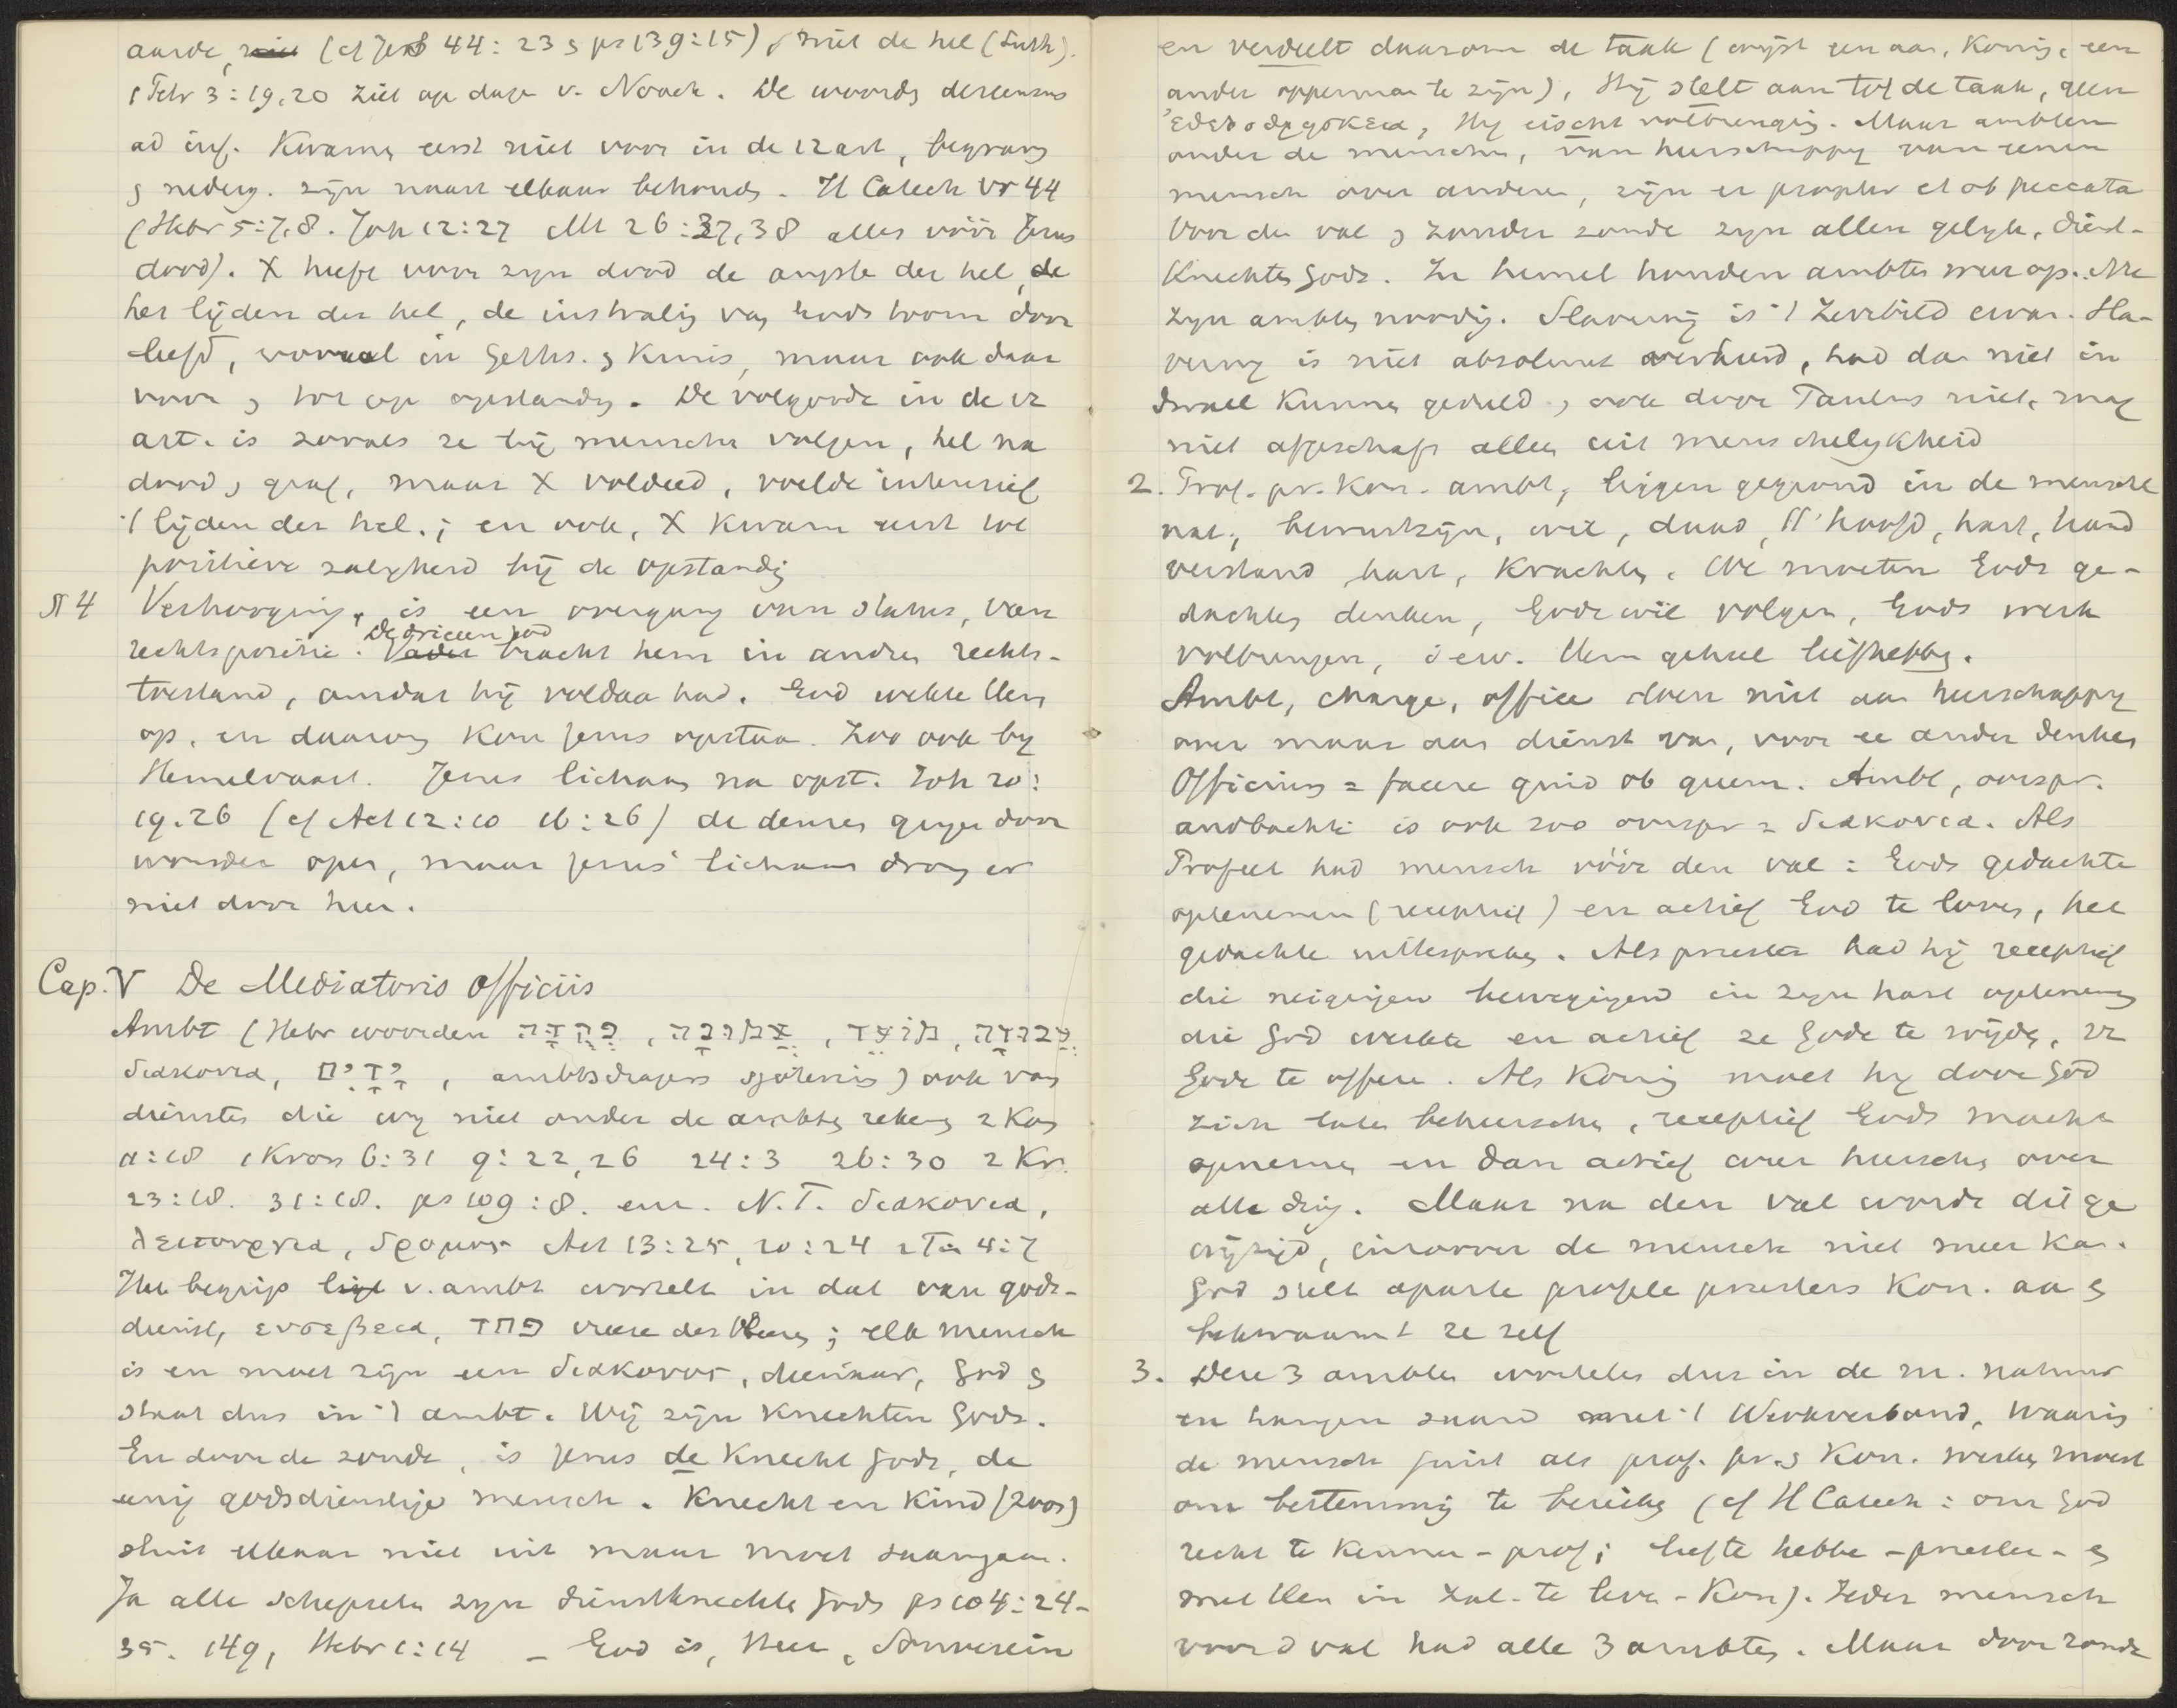 aarde, (cf Jes 44:23 ps 139:15), niet de hel (Luth).
1 Petr 3:19,20 ziet op dage v. Noach. De woorden descensus
ad inf. kwamen eerst niet voor in de 12 art, begraven
nederg. zijn naast elkaar behouden. H Catech vr 44
(Hebr 5:7,8. Joh 12:27 Mt 26:37,38 alles vóór Jezus
dood). X heeft voor zijn dood de angste der hel, de
het lijden der hel, de instraling van Gods toorn door
leefd, vooral in Geths. kruis, maar ook daar
voor tot op opstanding. De volgorde in de 12
art. is zooals ze bij mensche volgen, hel na
dood, graf, maar X voldeed, voelde intensief
't lijden der hel.; en ook, X kwam eerst tot
positieve zaligheid bij de opstanding
§ 4 Verhooging, is een overgang van status, van
rechtspositie. De drieeen God bracht hem in andere rechts-
toestand, omdat hij voldaan had. God wekte Hem
op, en daarom kon Jezus opstaan. Zoo ook bij
Hemelvaart. Jezus lichaam na opst. Joh 20:
19.26 (cf Act 12:10 16:26) de deuren gingen door
wonder open, maar Jezus' lichaam drong er
niet door heen.
Cap. V De Mediatoris Officiis
Ambt (Hebr woorden
διακονια, , ambtsdragers ) ook van
diensten die wij niet onder de ambten rekenen 2 Kon
11:18 1 Kron 6:31 9:22,26 24:3 26:30 2 Kr.
23:18. 31:18. ps 109:8. enz. N.T. διακονια,
λειτουργια, δρομος Act 13:25, 20:24 2 Tim 4:7
Het begrip v. ambt wortelt in dat van gods-
dienst, ευσεβεια, פחד vreeze des Heeren; elk mensch
is en moet zijn een διακονος, dienaar, God
staat dus in 't ambt. Wij zijn knechten Gods.
En door de zonde, is Jezus de Knecht Gods, de
enig godsdienstige mensch. Knecht en Kind (zoon)
sluit elkaar niet uit maar moet saamgaan.
Ja alle schepselen zijn dienstknechten Gods ps 104:24-
35. 149, Hebr 1:14 - God is, Heer, Souverein
en verdeelt daarom de taak (wijst een aan, Koning, een
ander opperman te zijn), Hij stelt aan tot de taak, geen
, Hij eischt volbrenging. Maar ambten
onder de menschen, van heerschappij van eenen
mensch over anderen, zijn er propter et ob peccata
Voor den val zonder zonde zijn allen gelijk, dienst-
knechten Gods. In hemel houden ambten weer op. Nu
zijn ambten noodig. Slavernij is 't Zerrbild ervan. Sla-
verny is niet absoluut verkeerd, had dan niet in
Israel kunnen geduld, ook door Paulus niet, mag
niet afgeschaft alleen uit menschelykheid
2. Prof. pr. kon. ambt, liggen gegrond in de mensche
nat., bewustzijn, wil, daad, // hoofd, hart, hand
verstand hart, krachten. We moeten Gods ge-
dachten denken, Gods wil volgen, Gods werk
volbrengen, i e w. Hem geheel liefhebben.
Ambt, charge, office doen niet aan heerschappy
over maar aan dienst van, voor een ander denken
Officium = facere quid ob quem. Ambt, oorspr.
andbachti is ook zoo oorspr = διακονια. Als
Profeet had mensch vóór den val: Gods gedachte
opteneemen (receptief) en actief God te loven, het
gedachte uittespreken. Als priester had hij receptief
die neigingen bewegingen in zijn hart opteneme
die God werkte en actief ze Gode te wijden,
Gode te offeren. Als Koning moet hij door God
zich laten beheerschen, receptief Gods macht
opnemen en dan actief weer heerschen over
alle ding. Maar na den val wordt dit ge
wijzigd, inzoover de mensch niet meer kan.
God stelt aparte profete priesters Kon. aan
bekwaamt ze zelf
3. Deze 3 ambten wortelen dus in de m. natuur
en hangen saam met 't Werkverbond, waarin
de mensch juist als prof. pr. Kon. werken moest
om bestemming te bereiken (cf H Catech: om God
recht te kennen - prof; liefte hebben - priester -
met Hem in zal. te leven - Kon). Ieder mensch
voor d val had alle 3 ambten. Maar door zonde